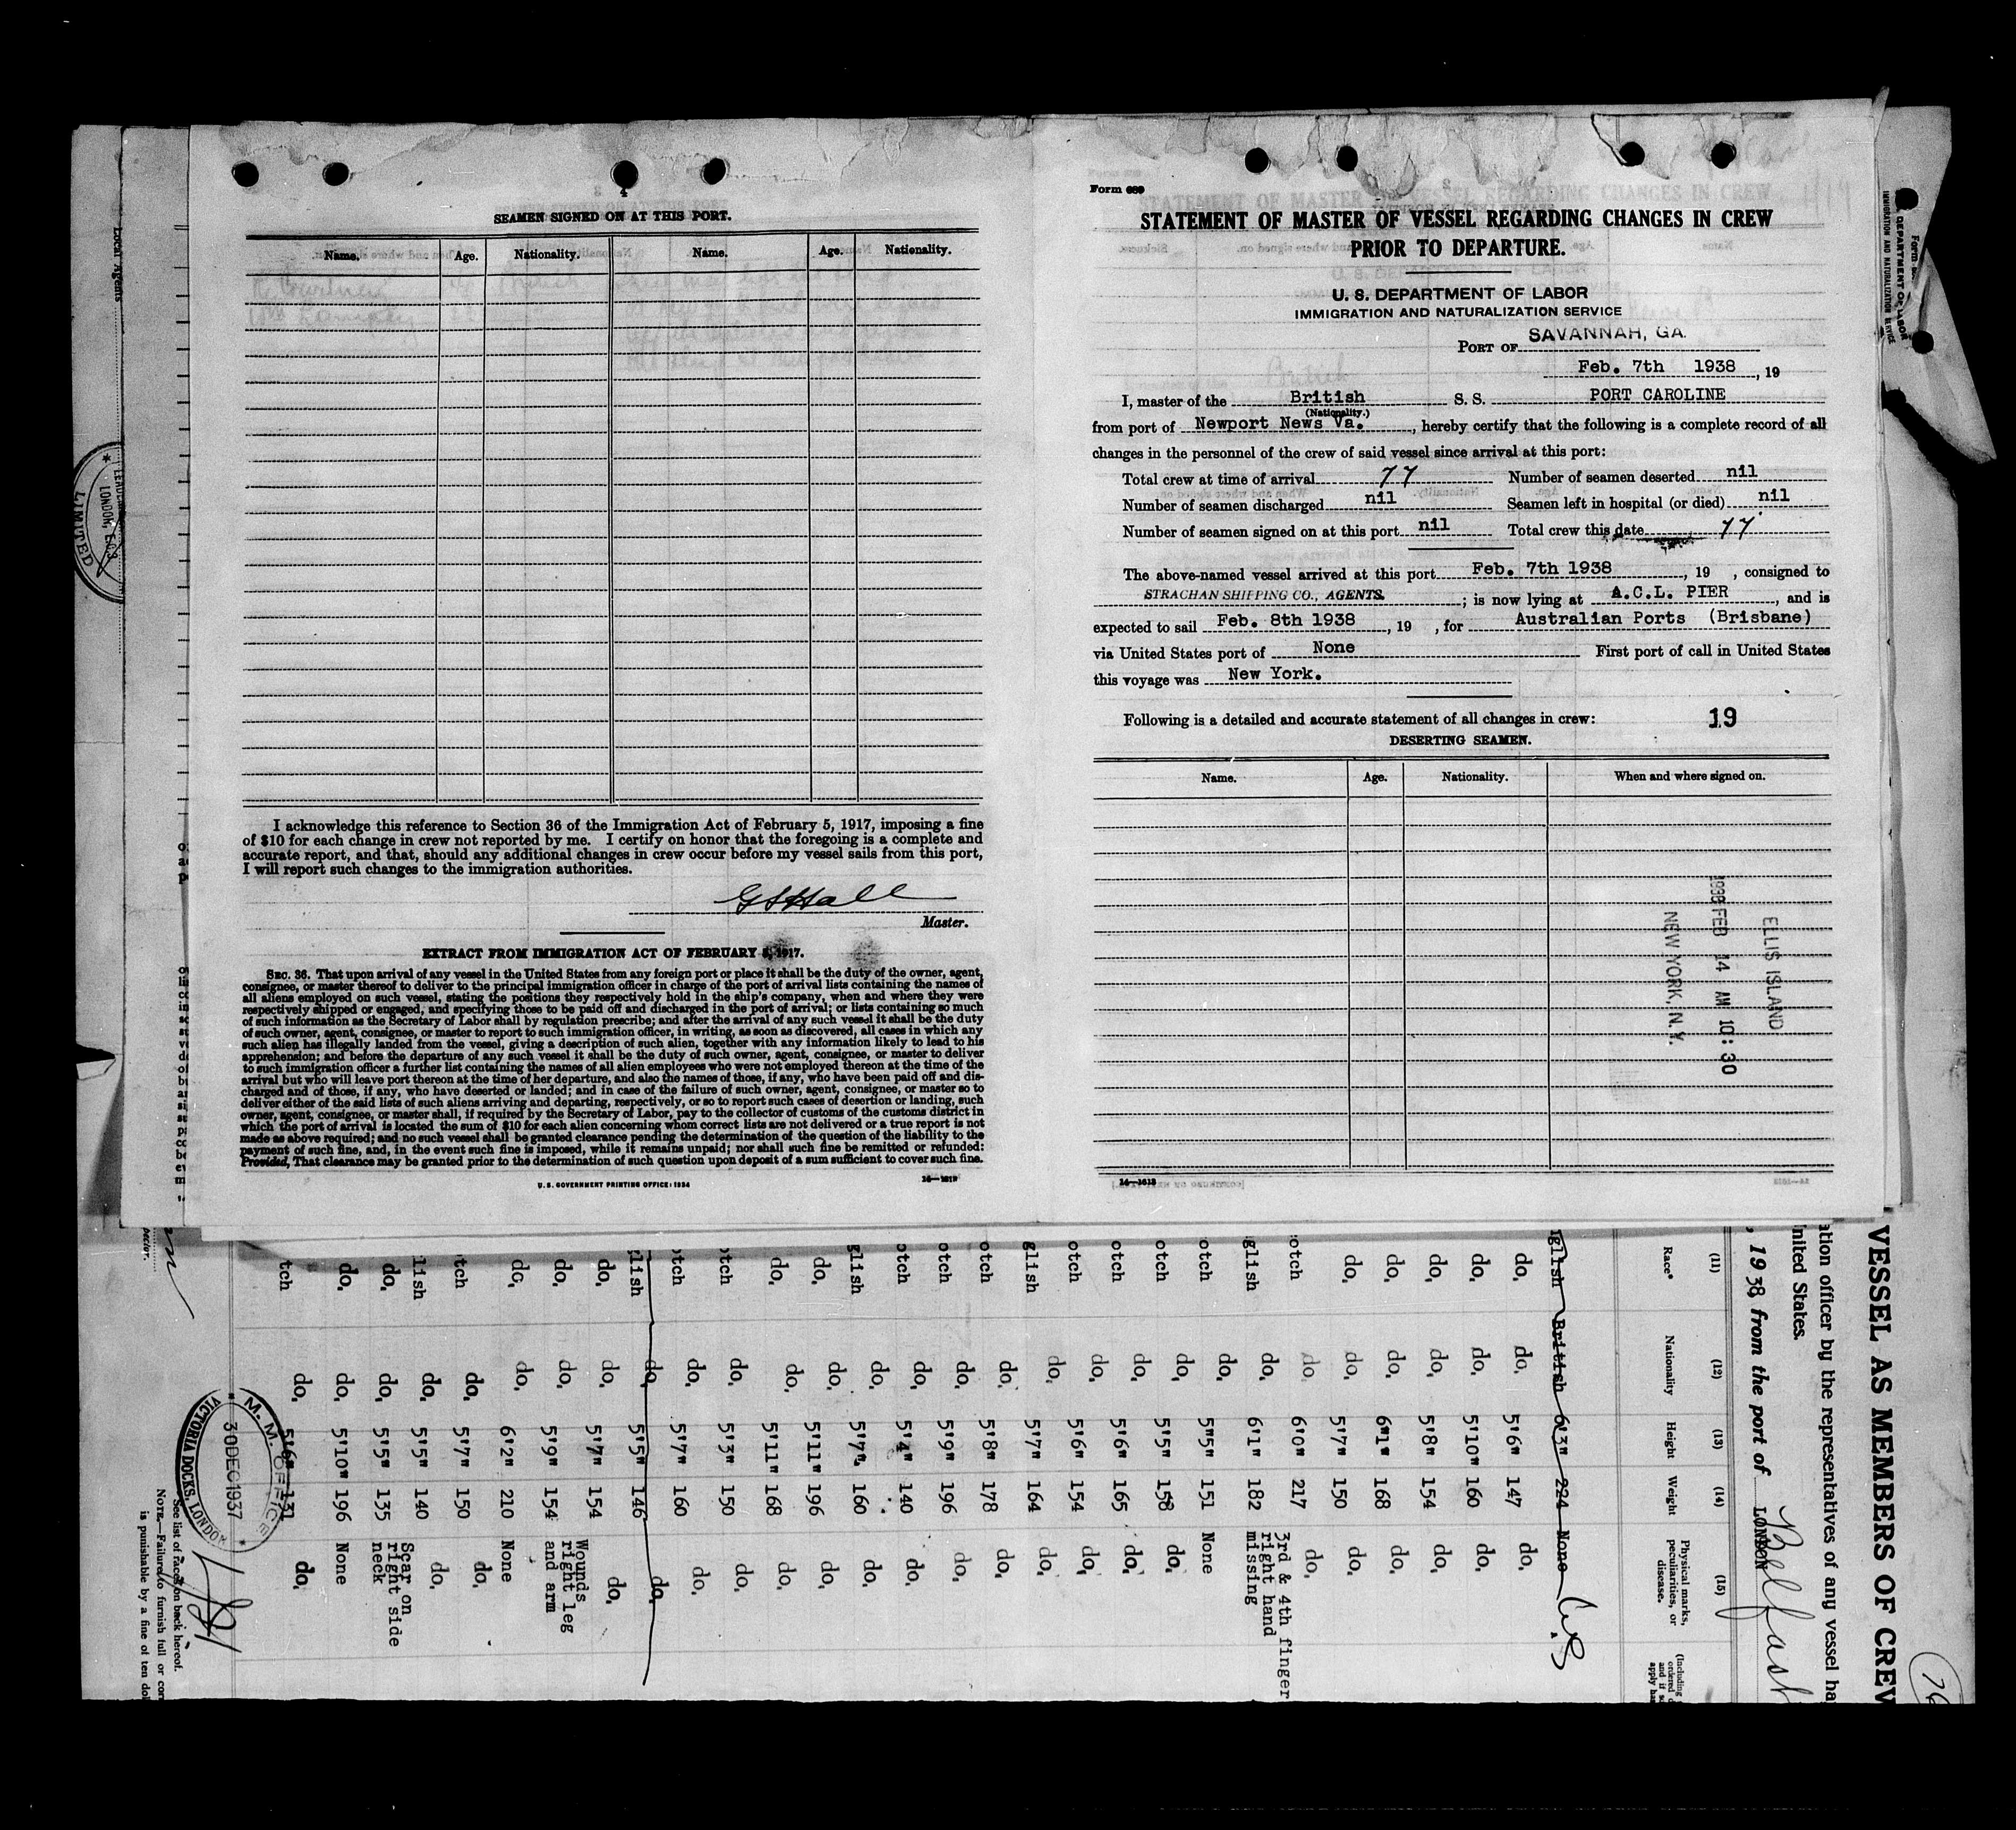 4
SEAMEN SIGNED ON AT THIS PORT.
Name. Age. Nationality. Name. Age. Nationality.
I acknowledge this reference to Section 36 of the Immigration Act of February 5, 1917, imposing a fine
of $10 for each change in crew not reported by me. I certify on honor that the foregoing is a complete and
accurate report, and that, should any additional changes in crew occur before my vessel sails from this port,
I will report such changes to the immigration authorities.
GSHall
Master.
EXTRACT FROM IMMIGRATION ACT OF FEBRUARY 5, 1917.
SEC. 36. That upon arrival of any vessel in the United States from any foreign port or place it shall be the duty of the owner, agent,
consignee, or master thereof to deliver to the principal immigration officer in charge of the port of arrival lists containing the names of
all aliens employed on such vessel, stating the positions they respectively hold in the ship's company, when and where they were
respectively shipped or engaged, and specifying those to be paid off and discharged in the port of arrival; or lists containing so much
of such information as the Secretary of Labor shall by regulation prescribe; and after the arrival of any such vessel it shall be the duty
of such owner, agent, consignee, or master to report to such immigration officer, in writing, as soon as discovered, all cases in which any
such alien has illegally landed from the vessel, giving a description of such alien, together with any information likely to lead to his
apprehension; and before the departure of any such vessel it shall be the duty of such owner, agent, consignee, or master to deliver
to such immigration officer a further list containing the names of all alien employees who were not employed thereon at the time of the
arrival but who will leave port thereon at the time of her departure, and also the names of those, if any, who have been paid off and dis-
charged and of those, if any, who have deserted or landed; and in case of the failure of such owner, agent, consignee, or master so to
deliver either of the said lists of such aliens arriving and departing, respectively, or so to report such cases of desertion or landing, such
owner, agent, consignee, or master shall, if required by the Secretary of Labor, pay to the collector of customs of the customs district in
which the port of arrival is located the sum of $10 for each alien concerning whom correct lists are not delivered or a true report is not
made as above required; and no such vessel shall be granted clearance pending the determination of the question of the liability to the
payment of such fine, and, in the event such fine is imposed, while it remains unpaid; nor shall such fine be remitted or refunded:
Provided, That clearance may be granted prior to the determination of such question upon deposit of a sum sufficient to cover such fine.
U. S. GOVERNMENT PRINTING OFFICE: 1934
Form 689
STATEMENT OF MASTER OF VESSEL REGARDING CHANGES IN CREW
PRIOR TO DEPARTURE.
U. S. DEPARTMENT OF LABOR
IMMIGRATION AND NATURALIZATION SERVICE
PORT OF SAVANNAH, GA.
Feb. 7th 1938, 19
I, master of the British S. S. PORT CAROLINE
(Nationality.)
from port of Newport News Va., hereby certify that the following is a complete record of all
changes in the personnel of the crew of said vessel since arrival at this port:
Total crew at time of arrival 77 Number of seamen deserted nil
Number of seamen discharged nil Seamen left in hospital (or died) nil
Number of seamen signed on at this port nil Total crew this date 77
The above-named vessel arrived at this port Feb. 7th 1938, 19 , consigned to
STRACHAN SHIPPING CO., AGENTS. ; is now lying at A.C.L. PIER, and is
expected to sail Feb. 8th 1938, 19 , for Australian Ports (Brisbane)
via United States port of None First port of call in United States
this voyage was New York.
Following is a detailed and accurate statement of all changes in crew: 19
DESERTING SEAMEN.
Name. Age. Nationality. When and where signed on.
ELLIS ISLAND
1938 FEB 14 AM 10:30
NEW YORK, N.Y.
Local Agents
LONDON, E.C.3
LIMITED
DEPARTMENT OF LABOR
IMMIGRATION AND NATURALIZATION SERVICE
VESSEL AS MEMBERS OF CREW
ation officer by the representatives of any vessel ha
nited States.
, 1938 from the port of LONDON Belfast
(11) (12) (13) (14) (15)
Race* Nationality Height Weight Physical marks, peculiarities, or disease.
glish British 6'3" 224 None
do. do. 5'6" 147 do.
do. do. 5'10" 160 do.
do. do. 5'8" 154 do.
do. do. 6"1" 168 do.
do. do. 5'7" 150 do.
otch do. 6'0" 217 do.
glish do. 6'1" 182 3rd & 4th finger right hand missing
otch do. 5"5" 151 None
otch do. 5'5" 158 do.
otch do. 5'6" 165 do.
otch do. 5'6" 154 do.
glish do. 5'7" 164 do.
otch do. 5'8" 178 do.
otch do. 5'9" 196 do.
otch do. 5'4" 140 do.
glish do. 5'7" 160 do.
do. do. 5'11" 196 do.
do. do. 5'11" 168 do.
otch do. 5'3" 150 do.
otch do. 5'7" 160 do.
glish do. 5'5" 146 do.
do. do. 5'7" 154 do.
do. do. 5'9" 154 Wounds right leg and arm
do. do. 6'2" 210 None
tch do. 5'7" 150 do.
lish do. 5'5" 140 do.
do. do. 5'5" 135 Scar on right side neck
do. do. 5'10" 196 None
tch do. 5'6" 131 do.
M. M. OFFICE
30 DEC 1937
VICTORIA DOCKS, LONDON
See list of races on back hereof.
NOTE.—Failure to furnish full or corr
is punishable by a fine of ten dol